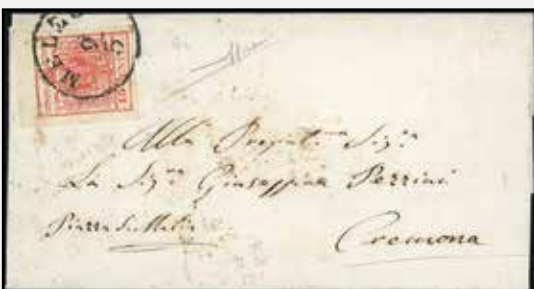 MELE
Alla Pregiat.ma Sig.ra
La Sig.ra Giuseppina Perrini
Piazza S.
Cremona